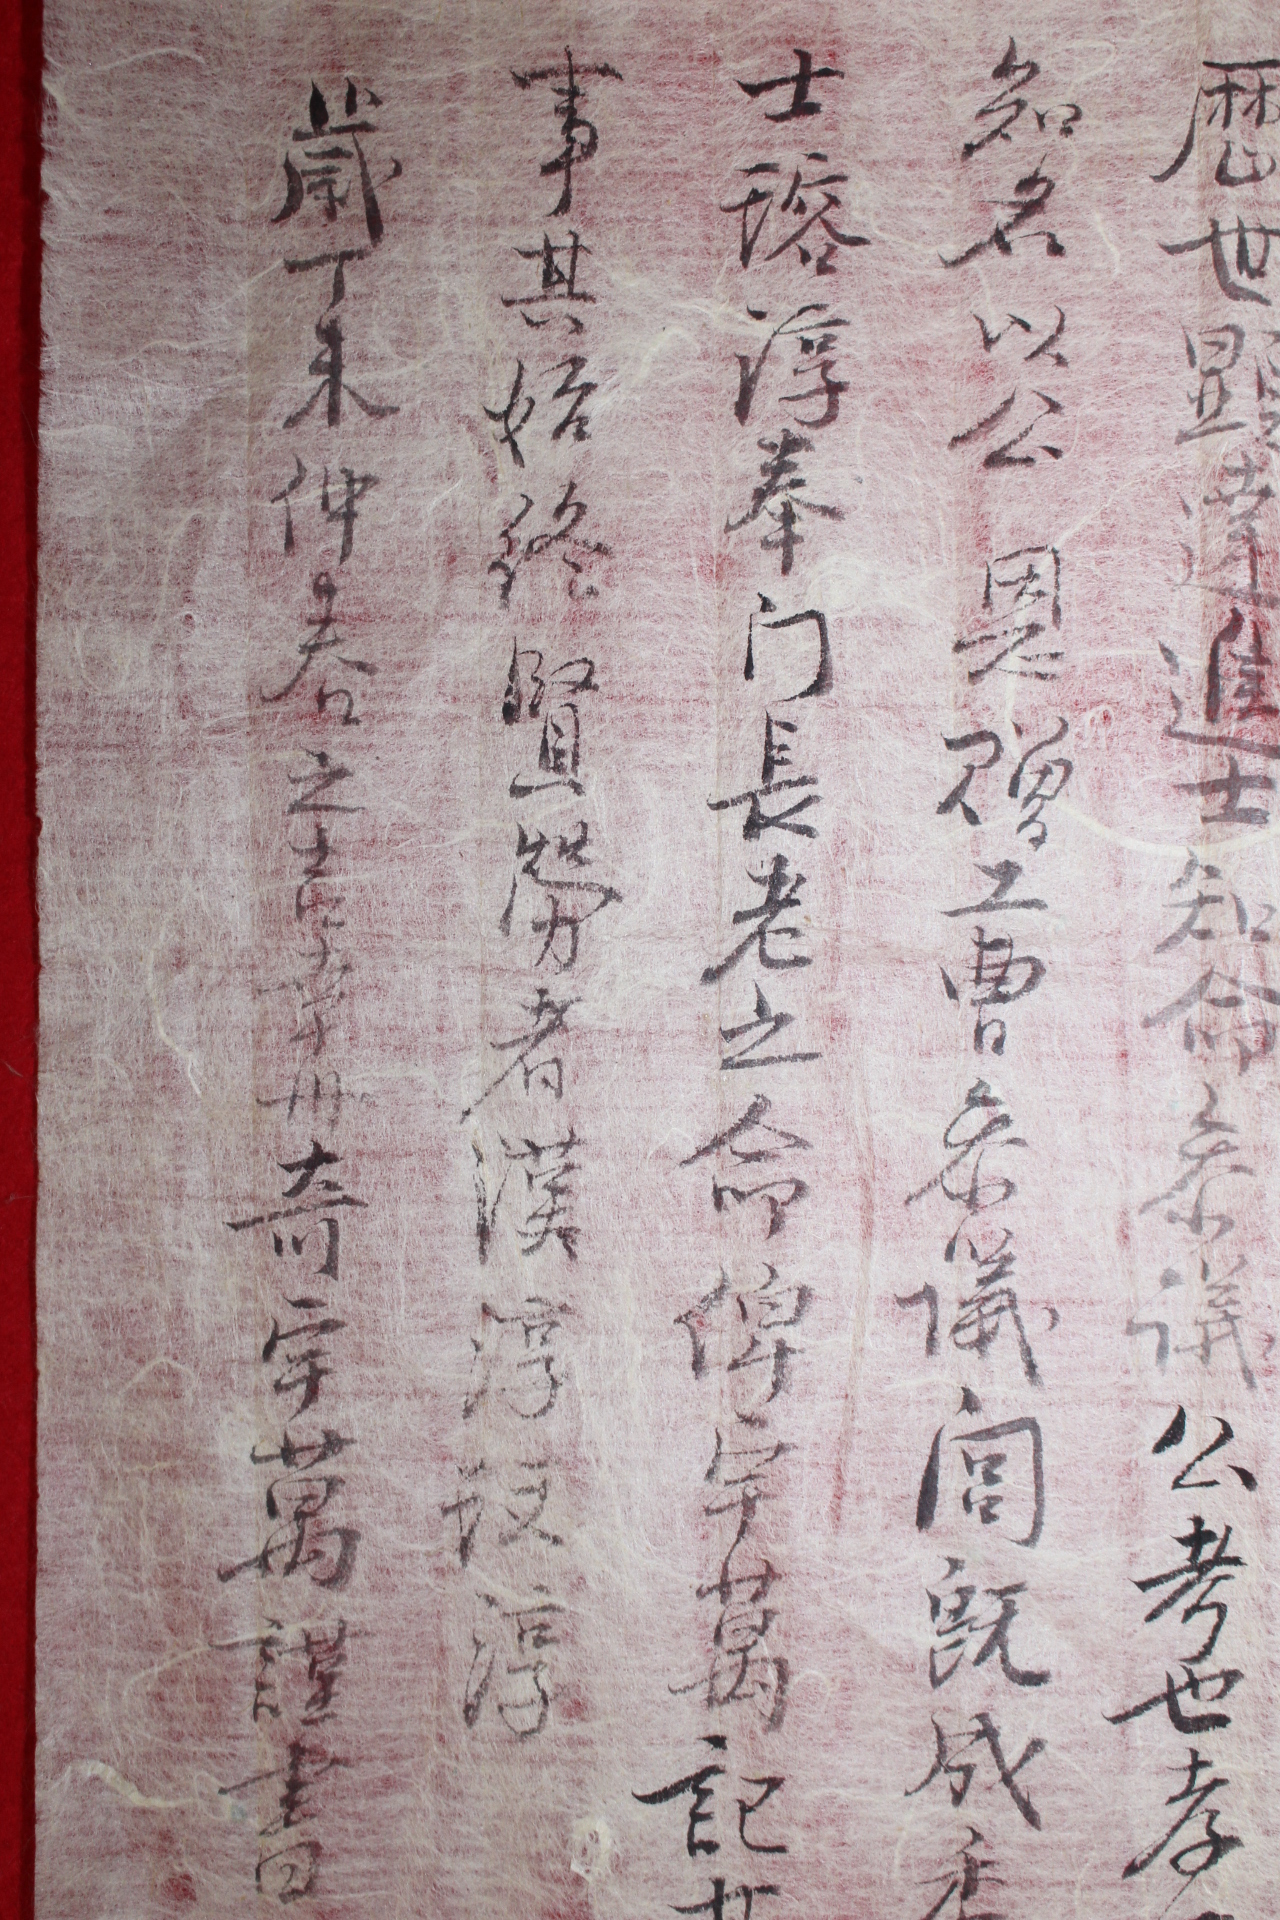 歷世顯達進士知命參議公考也孝
知名以公恩贈工曹參議閭旣成
士瑢淳奉门長老之命俾宇萬記
事其始終賢勞者漢淳淳
歲丁未仲春之奇宇萬謹書